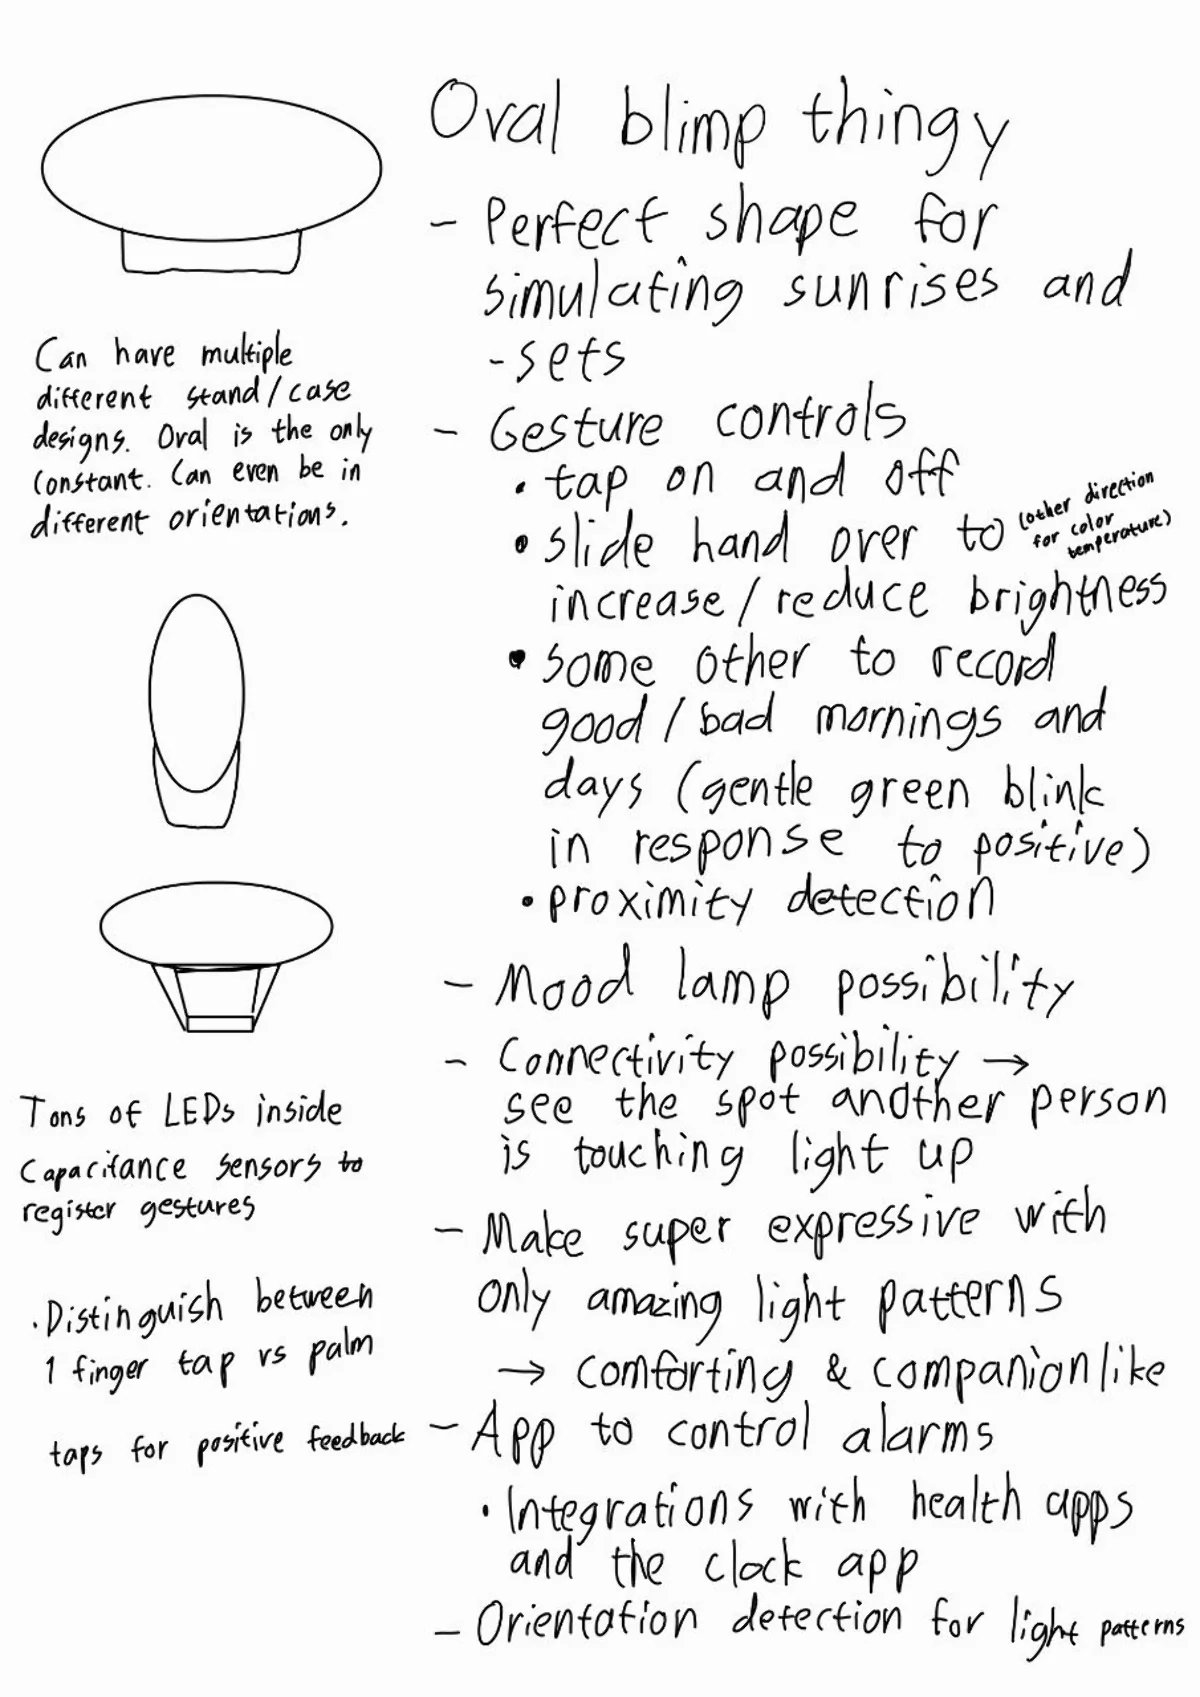 Oval blimp thingy
- Perfect shape for
simulating sunrises and
-sets
- Gesture controls
• tap on and off
• slide hand over to (other direction
for color
temperature)
increase/reduce brightness
• some other to record
good/bad mornings and
days (gentle green blink
in response to positive)
• proximity detection
- Mood lamp possibility
- Connectivity possibility →
see the spot another person
is touching light up
- Make super expressive with
only amazing light patterns
→ comforting & companionlike
- App to control alarms
• Integrations with health apps
and the clock app
- Orientation detection for light patterns
Can have multiple
different stand/case
designs. Oval is the only
constant. Can even be in
different orientations.
Tons of LEDs inside
Capacitance sensors to
register gestures
. Distinguish between
1 finger tap vs palm
taps for positive feedback